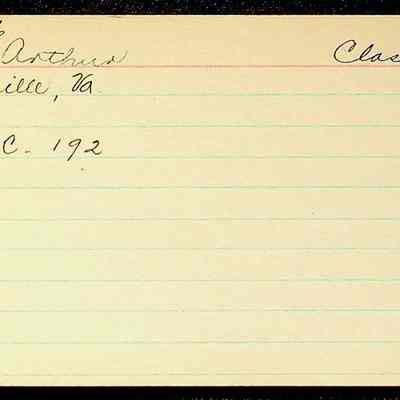 Arthur Clas
ille, Va.
C. 192